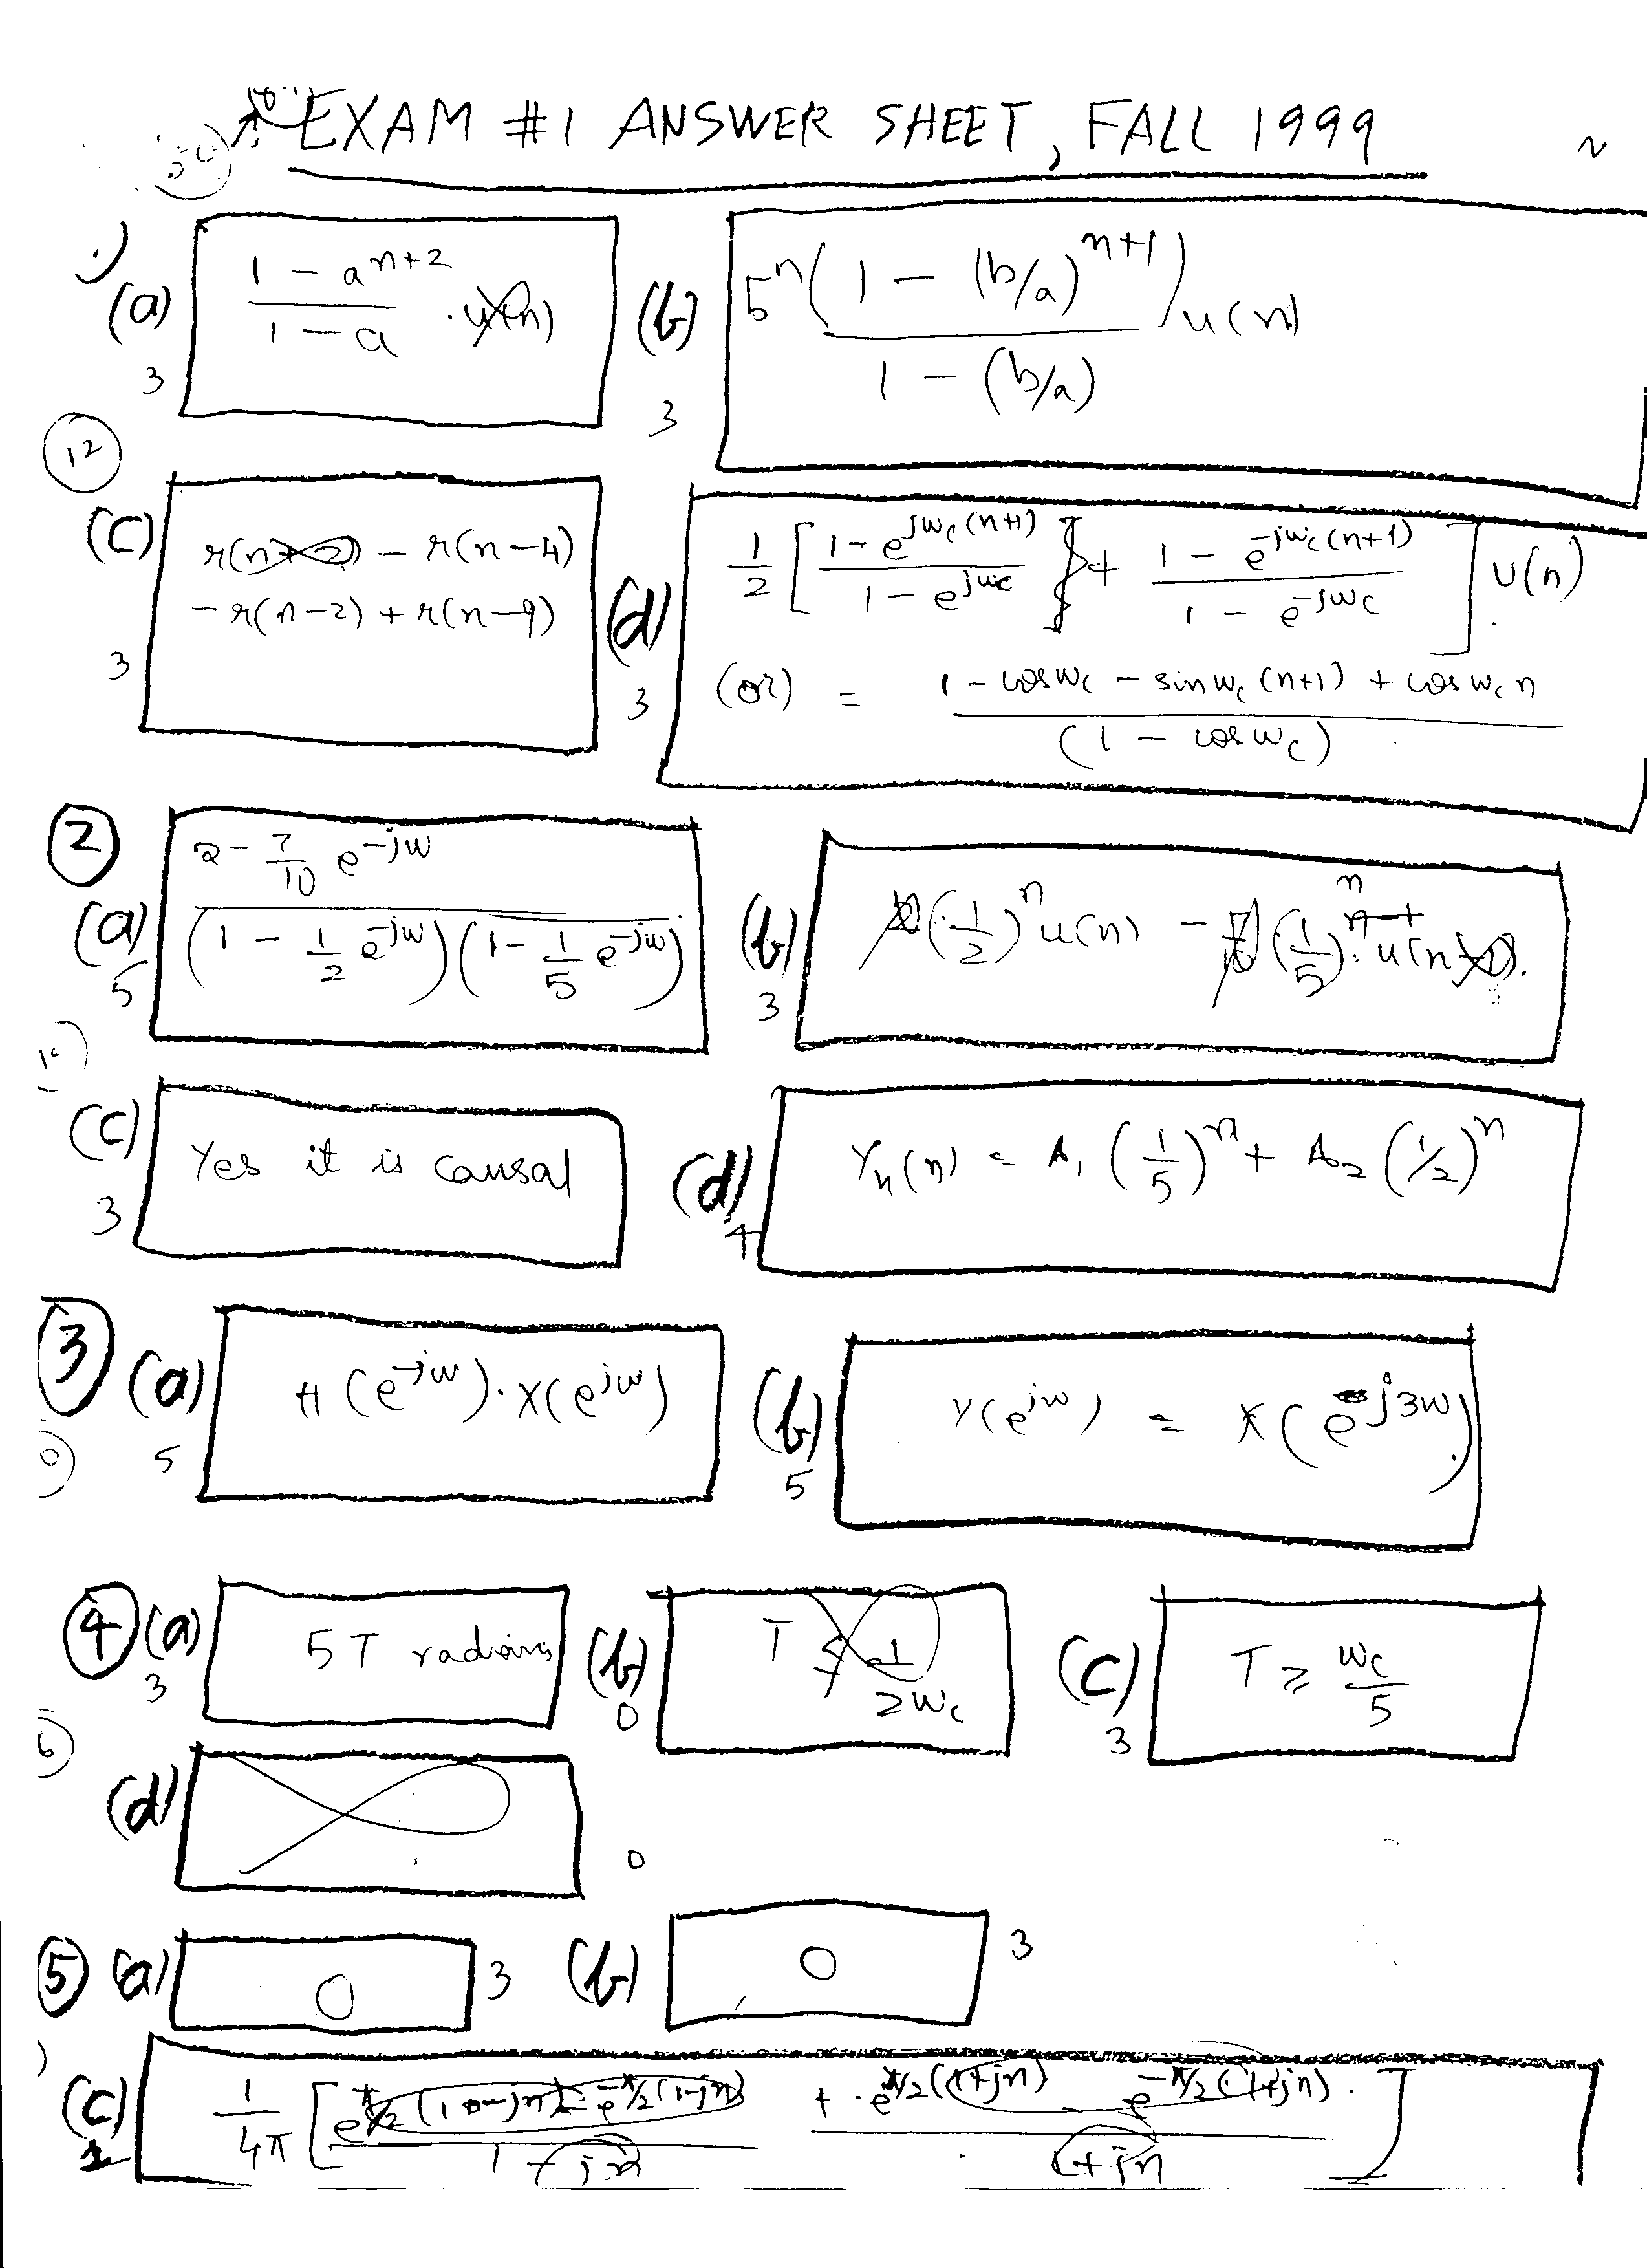 EXAM #1 ANSWER SHEET, FALL 1999
1)
(a) (1 - a^(n+2)) / (1 - a) ·
3
(b) 5^n ((1 - (b/a)^(n+1)) / (1 - (b/a))) u(n)
3
12
(c) r(n) - r(n-4)
- r(n-2) + r(n-9)
3
(d) 1/2 [ (1 - e^(jwc(n+1))) / (1 - e^(jwc)) + (1 - e^(-jwc(n+1))) / (1 - e^(-jwc)) ] u(n)
(or) = (1 - cos wc - sin wc(n+1) + cos wc n) / (1 - cos wc)
3
2
(a) (2 - 7/10 e^(-jw)) / ((1 - 1/2 e^(-jw))(1 - 1/5 e^(-jw)))
5
(b) (1/2)^n u(n) - (1/5)^n · u(n).
3
(c) Yes it is causal
3
(d) Yh(n) = A1 (1/5)^n + A2 (1/2)^n
4
3
(a) H(e^(-jw)) · X(e^(jw))
5
(b) Y(e^(jw)) = X(e^(j3w))
5
4
(a) 5T radians
3
(b) T ≤ 1/(2wc)
0
(c) T ≥ wc/5
3
6
(d)
0
5
(a) 0
3
(b) 0
3
(c) 1/4π [ (e^(π/2(1-jn)) - e^(-π/2(1-jn))) / (1-jn) + (e^(π/2(1+jn)) e^(-π/2(1+jn))) / (1+jn) ]